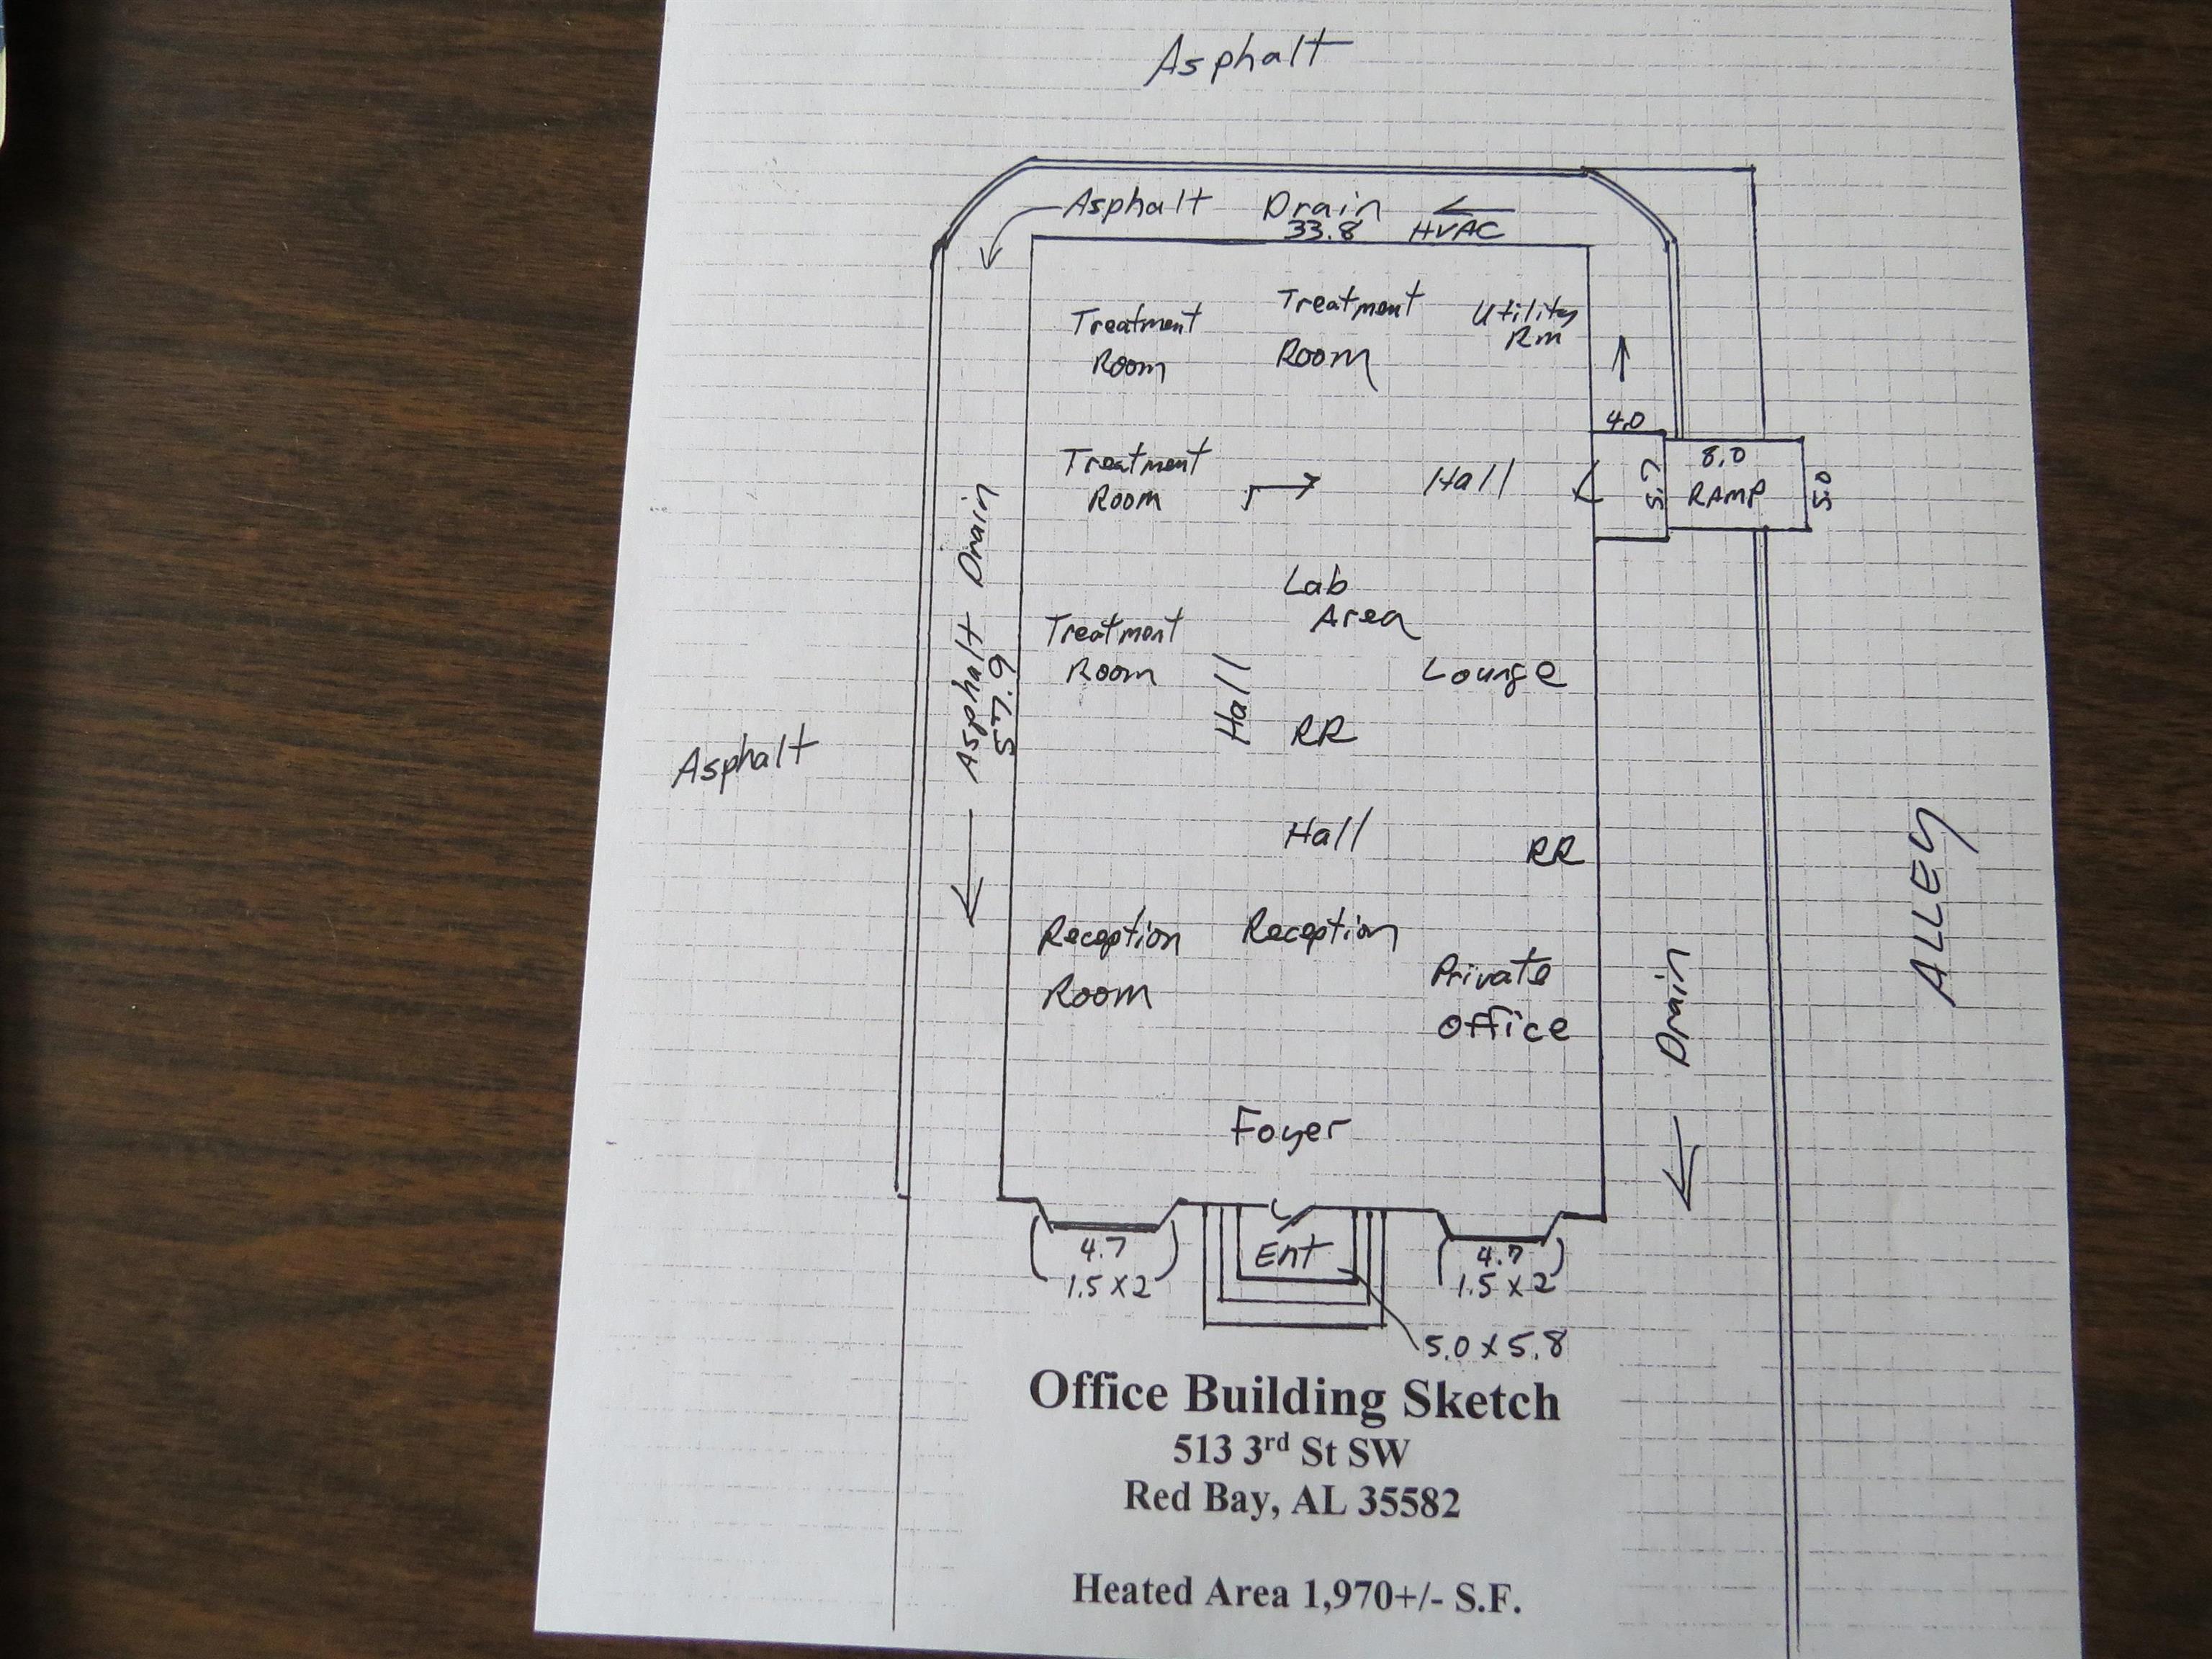 Asphalt
Asphalt Drain
33.8 HVAC
Treatment
Room
Treatment
Room
Utility
Rm
4.0
Treatment
Room
Hall
5.7
8.0
RAMP
5.0
Asphalt Drain
57.9
Lab
Area
Treatment
Room
Hall
Lounge
RR
Asphalt
Hall
RR
ALLEY
Reception
Room
Reception
Private
Office
Drain
Foyer
4.7
1.5 X 2
Ent
4.7
1.5 X 2
5.0 X 5.8
Office Building Sketch
513 3rd St SW
Red Bay, AL 35582
Heated Area 1,970+/- S.F.